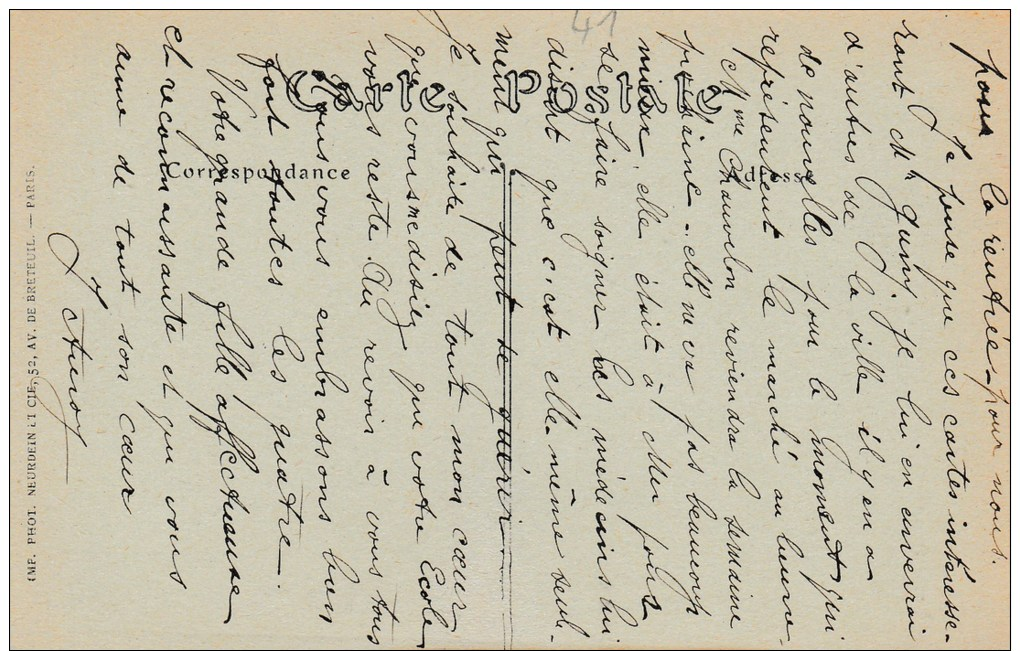 pour la rentrée - pour nous.
Je pense que ces cartes intéresse-
ront Mr Guiny. je lui en enverrai
d'autres de la ville il y en a
de nouvelles pour le moment qui
représentent le marché au beurre -
Mme Chauvelon reviendra la semaine
prochaine - elle ne va pas beaucoup
mieux, elle était à pour
se faire soigner les médecins lui
disent que c'est elle même seule-
ment qui peut se guérir -
Je souhaite de tout mon cœur
que vous me disiez que votre Ecole
vous reste. Au revoir à vous tous
nous vous embrassons bien
fort toutes les quatre.
Votre grande fille affectueuse
et reconnaissante et qui vous
aime de tout son cœur
41
Carte Postale
Correspondance
Adresse
IMP. PHOT. NEURDEIN ET CIE, 52, AV. DE BRETEUIL. — PARIS.